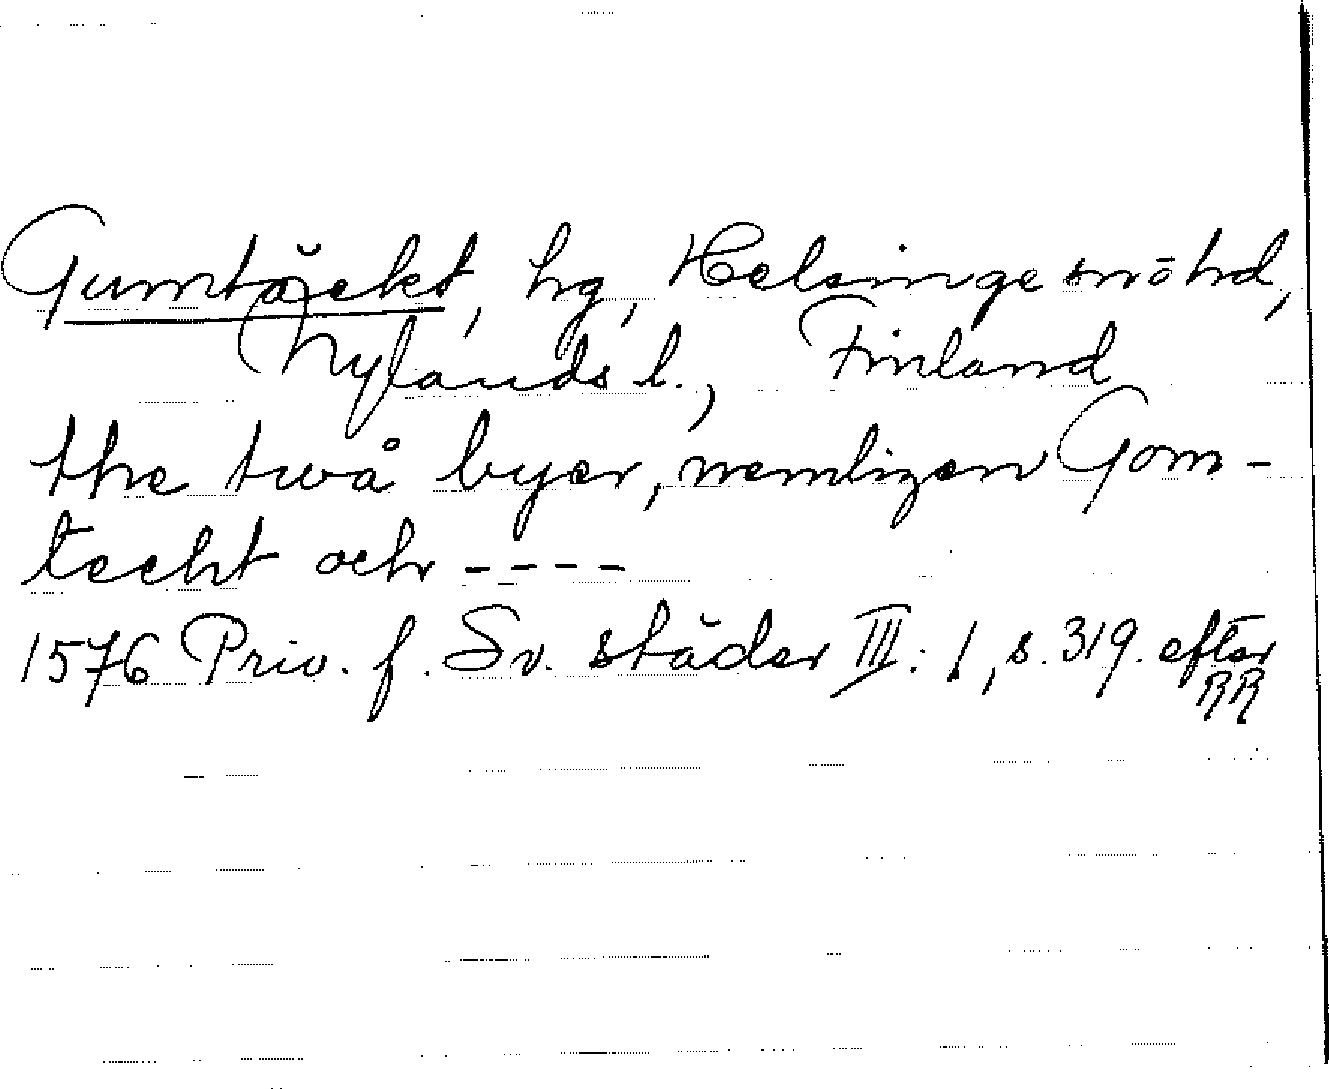 Gumtäckt, hg, Helsinge snöhd,
Nylands l., Finland
the twå byer, nemligen Gom-
techt och ----
1576 Priv. f. Sv. städer III: 1, s. 319. efter
RR